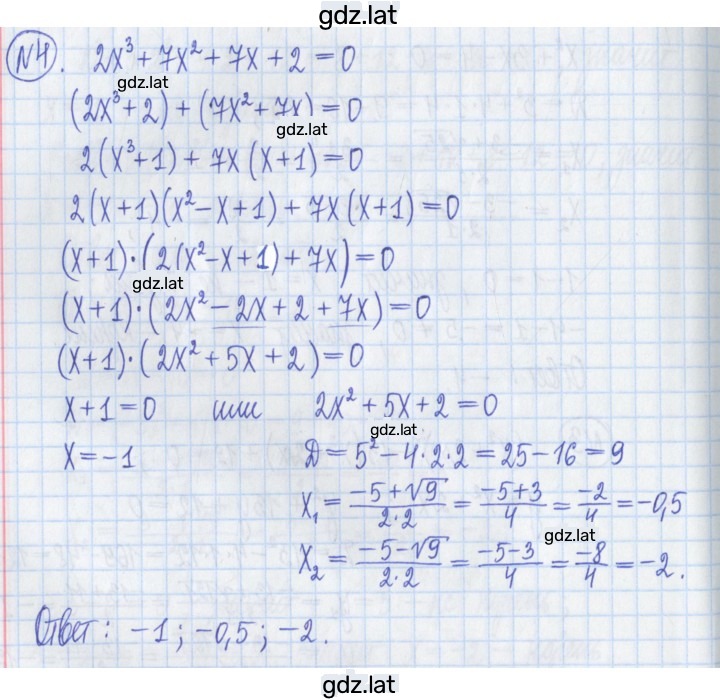 gdz.lat
№4. 2x³ + 7x² + 7x + 2 = 0
gdz.lat
(2x³ + 2) + (7x² + 7x) = 0
gdz.lat
2(x³ + 1) + 7x(x + 1) = 0
2(x + 1)(x² − x + 1) + 7x(x + 1) = 0
(x + 1)·(2(x² − x + 1) + 7x) = 0
gdz.lat
(x + 1)·(2x² − 2x + 2 + 7x) = 0
(x + 1)·(2x² + 5x + 2) = 0
x + 1 = 0 или 2x² + 5x + 2 = 0
gdz.lat
x = −1 D = 5² − 4·2·2 = 25 − 16 = 9
x₁ = (−5 + √9)/(2·2) = (−5 + 3)/4 = −2/4 = −0,5
gdz.lat
x₂ = (−5 − √9)/(2·2) = (−5 − 3)/4 = −8/4 = −2.
Ответ: −1; −0,5; −2.
gdz.lat